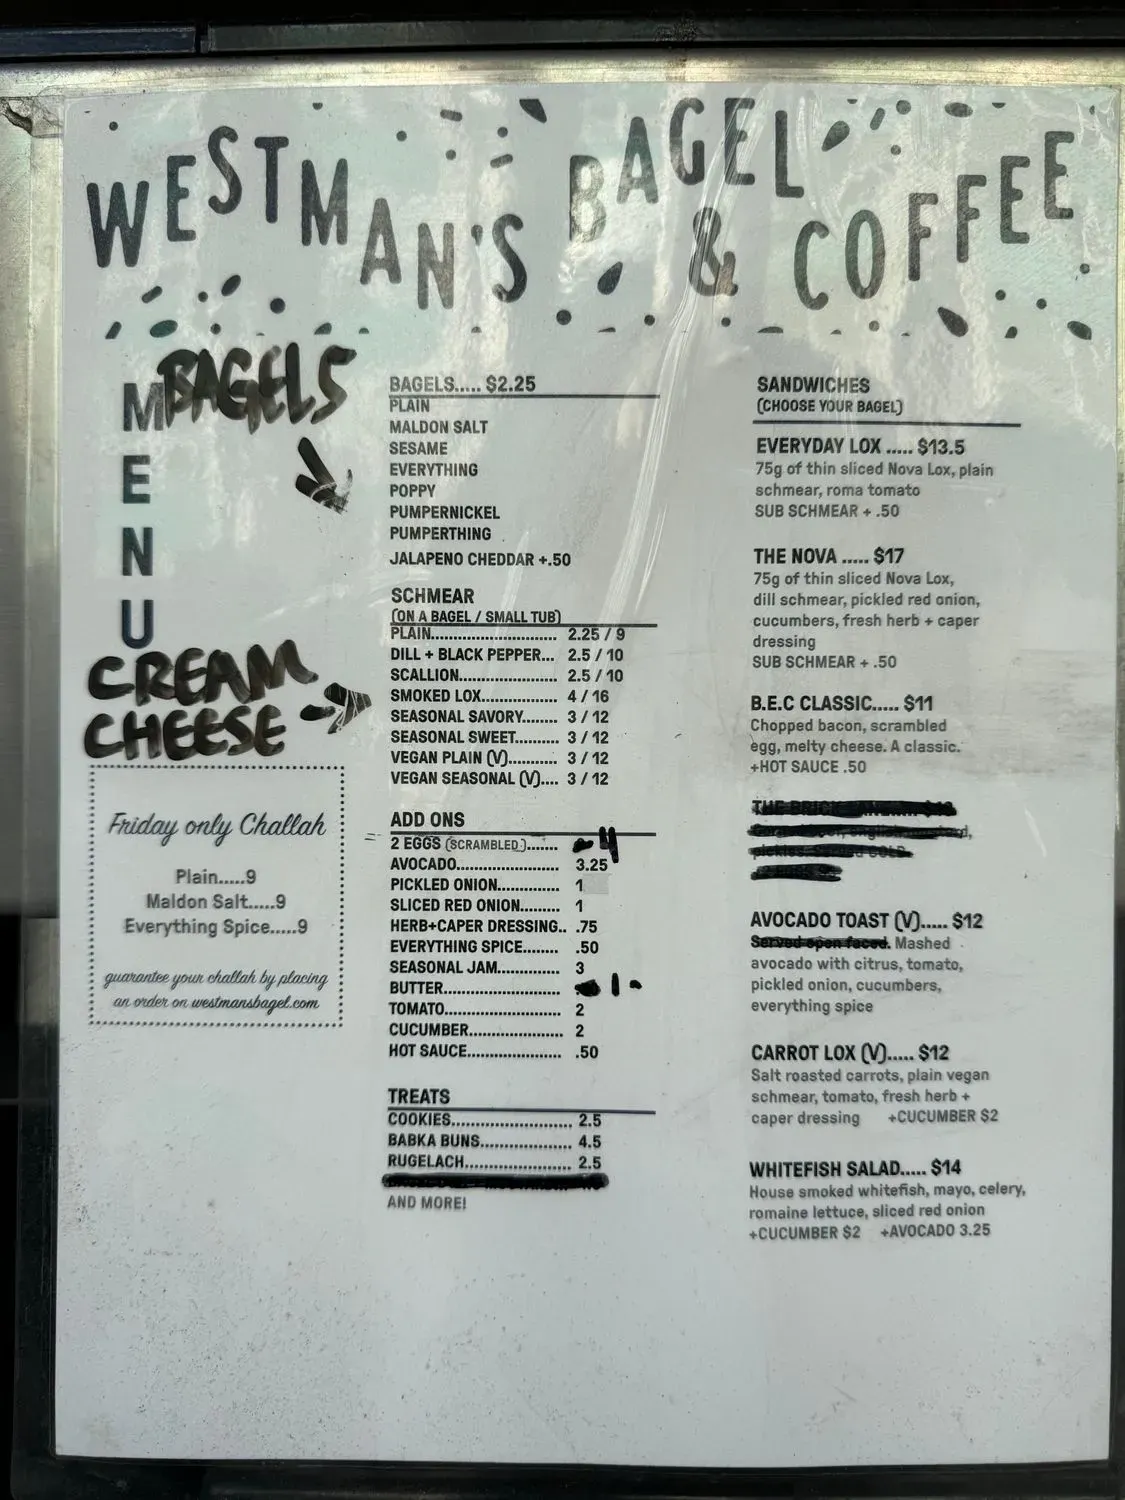 WESTMAN'S BAGEL
& COFFEE
MENU
BAGELS
CREAM
CHEESE
Friday only Challah
Plain.....9
Maldon Salt.....9
Everything Spice.....9
guarantee your challah by placing
an order on westmansbagel.com
BAGELS..... $2.25
PLAIN
MALDON SALT
SESAME
EVERYTHING
POPPY
PUMPERNICKEL
PUMPERTHING
JALAPENO CHEDDAR +.50
SCHMEAR
(ON A BAGEL / SMALL TUB)
PLAIN.............................. 2.25 / 9
DILL + BLACK PEPPER... 2.5 / 10
SCALLION........................ 2.5 / 10
SMOKED LOX.................. 4 / 16
SEASONAL SAVORY........ 3 / 12
SEASONAL SWEET.......... 3 / 12
VEGAN PLAIN (V)........... 3 / 12
VEGAN SEASONAL (V).... 3 / 12
ADD ONS
2 EGGS (SCRAMBLED)....... 4
AVOCADO........................ 3.25
PICKLED ONION.............. 1
SLICED RED ONION......... 1
HERB+CAPER DRESSING.. .75
EVERYTHING SPICE........ .50
SEASONAL JAM............... 3
BUTTER........................... 1
TOMATO.......................... 2
CUCUMBER..................... 2
HOT SAUCE..................... .50
TREATS
COOKIES............................ 2.5
BABKA BUNS..................... 4.5
RUGELACH........................ 2.5
AND MORE!
SANDWICHES
(CHOOSE YOUR BAGEL)
EVERYDAY LOX ..... $13.5
75g of thin sliced Nova Lox, plain
schmear, roma tomato
SUB SCHMEAR + .50
THE NOVA ..... $17
75g of thin sliced Nova Lox,
dill schmear, pickled red onion,
cucumbers, fresh herb + caper
dressing
SUB SCHMEAR + .50
B.E.C CLASSIC..... $11
Chopped bacon, scrambled
egg, melty cheese. A classic.
+HOT SAUCE .50
AVOCADO TOAST (V)..... $12
Served open faced. Mashed
avocado with citrus, tomato,
pickled onion, cucumbers,
everything spice
CARROT LOX (V)..... $12
Salt roasted carrots, plain vegan
schmear, tomato, fresh herb +
caper dressing +CUCUMBER $2
WHITEFISH SALAD..... $14
House smoked whitefish, mayo, celery,
romaine lettuce, sliced red onion
+CUCUMBER $2 +AVOCADO 3.25